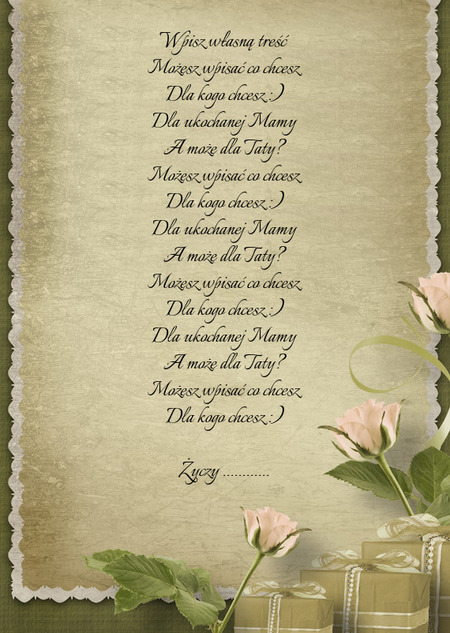 Wpisz własną treść
Możesz wpisać co chcesz
Dla kogo chcesz :)
Dla ukochanej Mamy
A może dla Taty?
Możesz wpisać co chcesz
Dla kogo chcesz :)
Dla ukochanej Mamy
A może dla Taty?
Możesz wpisać co chcesz
Dla kogo chcesz :)
Dla ukochanej Mamy
A może dla Taty?
Możesz wpisać co chcesz
Dla kogo chcesz :)
Życzy ............